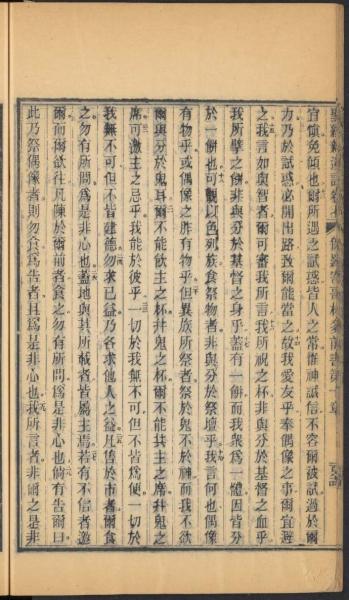 宜愼免傾也爾所遇之試惑皆人之常惟神誠信不容爾被試過於爾
力乃於試惑必開出路致爾能當之故我愛友乎奉偶像之事爾宜避
之我言如與智者爾可審我所言我所祝之杯非與分於基督之血乎
我所擘之餅非與分於基督之身乎蓋有一餅而我衆爲一體因皆分
於一餅也可觀以色列族食祭物者非與分於祭壇乎我言何也偶像
有物乎或偶像之胙有物乎但異族所祭者祭於鬼不於神而我不欲
爾與分於鬼耳爾不能飲主之杯幷鬼之杯爾不能共主之席幷鬼之
席可激主之忌乎我能於彼乎一切於我無不可但不皆爲便一切於
我無不可但不皆建德勿求已益乃各求他人之益凡售於市者爾食
之勿有所問爲是非心也蓋地與其所載者皆屬主焉若有不信者邀
爾而爾欲往凡陳於爾前者食之勿有所問爲是非心也倘有告爾曰
此乃祭偶像者則勿食爲告者且爲是非心也我所言者非爾之是非